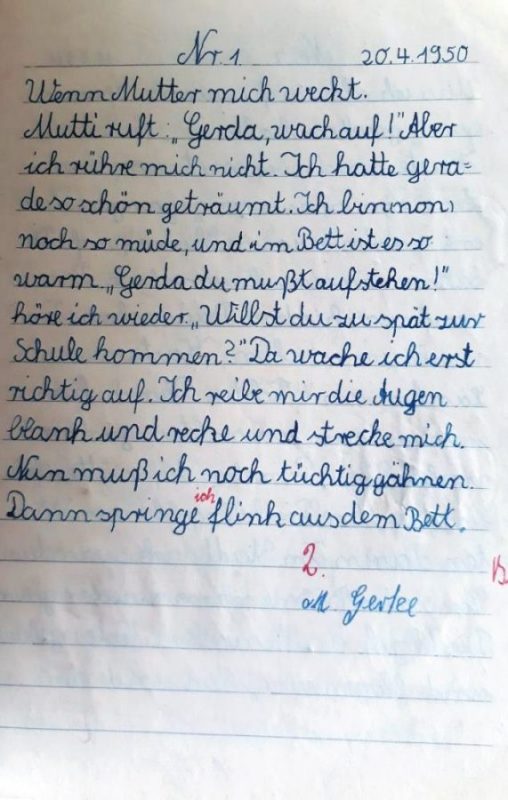 Nr. 1 20.4.1950
Wenn Mutter mich weckt.
Mutti ruft: „Gerda, wach auf!" Aber
ich rühre mich nicht. Ich hatte gera=
de so schön geträumt. Ich bin
noch so müde, und im Bett ist es so
warm. „Gerda du mußt aufstehen!"
höre ich wieder. „Willst du zu spät zur
Schule kommen?" Da wache ich erst
richtig auf. Ich reibe mir die Augen
blank und recke und strecke mich.
Nun muß ich noch tüchtig gähnen.
ich
Dann springe flink aus dem Bett.
2.